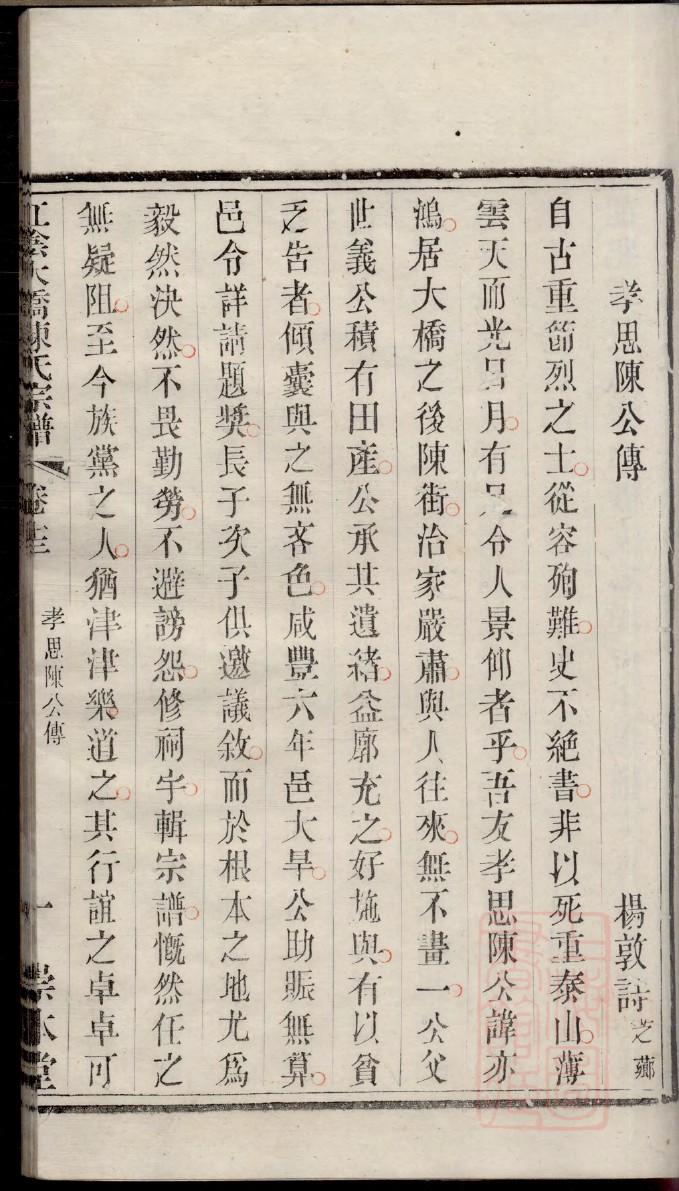 孝思陳公傳
楊敦詩芝薌
自古重節烈之士從容殉難史不絕書非以死重泰山薄
雲天而光日月有足令人景仰者乎吾友孝思陳公諱亦
鴻居大橋之後陳街治家嚴肅與人往來無不畫一公父
世義公積有田產公承其遺緒益廓充之好施與有以貧
乏告者傾囊與之無吝色咸豐六年邑大旱公助賑無算
邑令詳請題獎長子次子俱邀議敘而於根本之地尤爲
毅然決然不畏勤勞不避謗怨修祠宇輯宗譜慨然任之
無疑阻至今族黨之人猶津津樂道之其行誼之卓卓可
江陰大橋陳氏宗譜 卷十三 孝思陳公傳 一 崇本堂